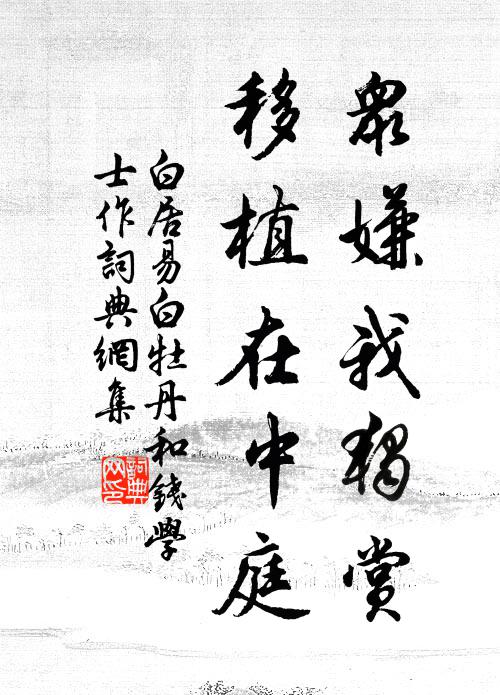 眾嫌我獨賞
移植在中庭
白居易白牡丹和錢學
士作詞典網集
詞典
网印